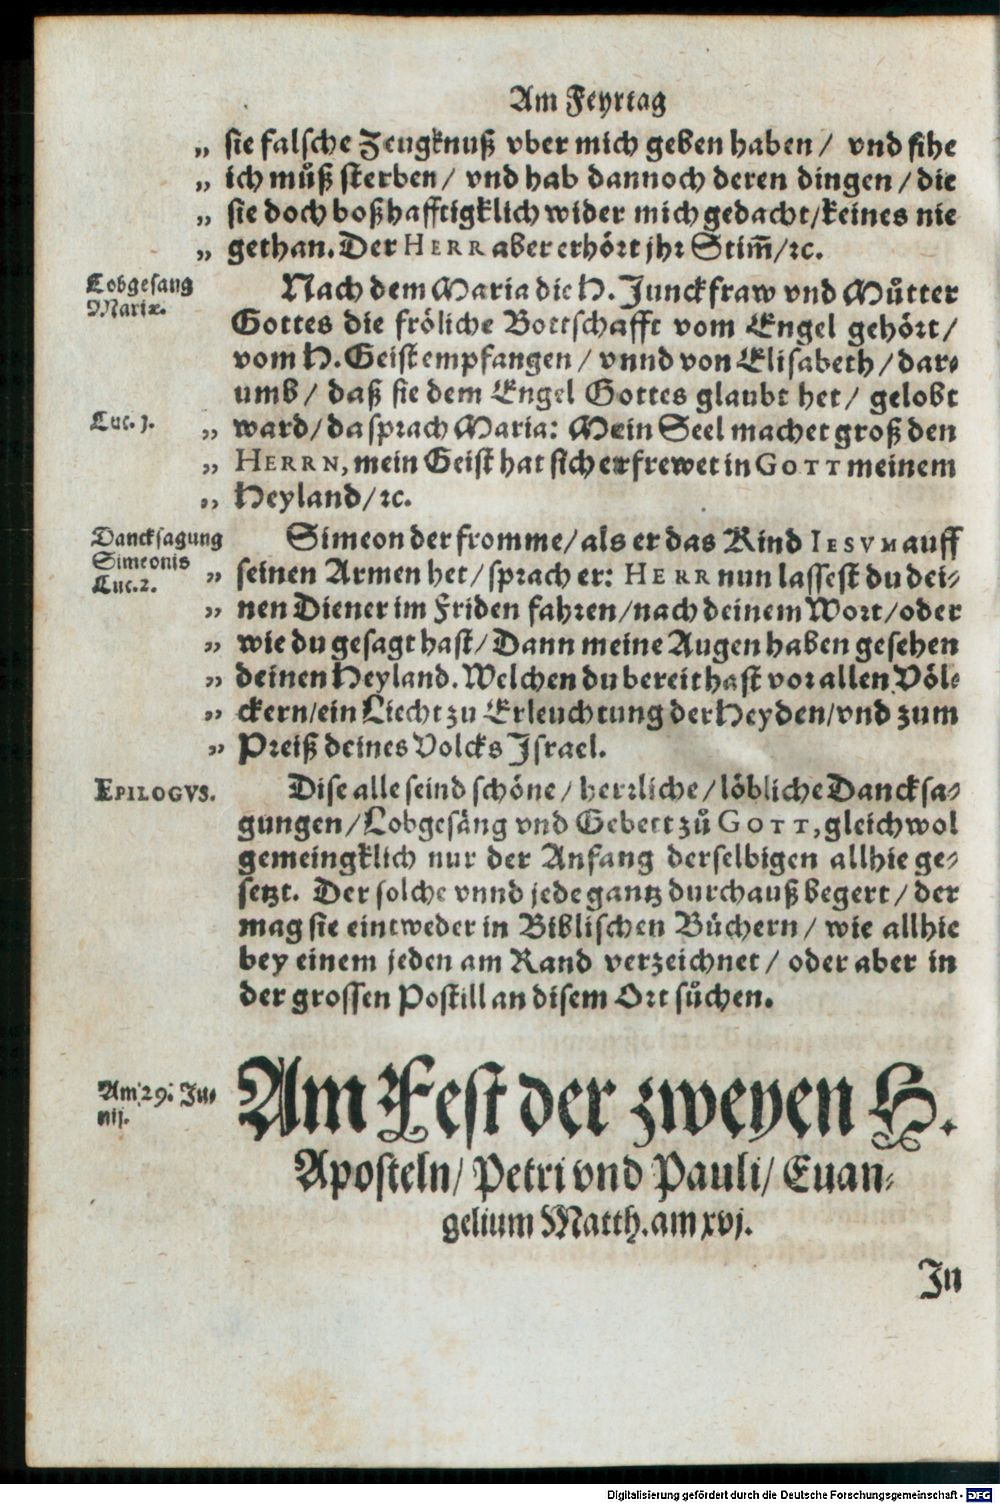 Am Feyrtag
„ sie falsche Zeugknuß vber mich geben haben / vnd sihe
„ ich můß sterben / vnd hab dannoch deren dingen / die
„ sie doch boßhafftigklich wider mich gedacht / keines nie
„ gethan. Der HERR aber erhört jhr Stim̃ / ꝛc.
Lobgesang
Mariæ.
Nach dem Maria die H. Junckfraw vnd Můtter
Gottes die fröliche Bottschafft vom Engel gehört /
vom H. Geist empfangen / vnnd von Elisabeth / dar-
umb / daß sie dem Engel Gottes glaubt het / gelobt
Luc. j.
„ ward / da sprach Maria: Mein Seel machet groß den
„ HERRN, mein Geist hat sich erfrewet in GOTT meinem
„ Heyland / ꝛc.
Dancksagung
Simeonis
Luc. 2.
Simeon der fromme / als er das Kind IESVM auff
„ seinen Armen het / sprach er: HERR nun lassest du dei-
„ nen Diener im Friden fahren / nach deinem Wort / oder
„ wie du gesagt hast / Dann meine Augen haben gesehen
„ deinen Heyland. Welchen du bereit hast vor allen Völ-
„ ckern / ein Liecht zu Erleuchtung der Heyden / vnd zum
„ Preiß deines Volcks Israel.
EPILOGVS.
Dise alle seind schöne / herrliche / löbliche Dancksa-
gungen / Lobgesäng vnd Gebett zů GOTT, gleichwol
gemeingklich nur der Anfang derselbigen allhie ge-
setzt. Der solche vnnd jede gantz durchauß begert / der
mag sie eintweder in Biblischen Büchern / wie allhie
bey einem jeden am Rand verzeichnet / oder aber in
der grossen Postill an disem Ort sůchen.
Am 29. Ju-
nij.
Am Fest der zweyen H.
Aposteln / Petri vnd Pauli / Euan-
gelium Matth. am xvj.
In
Digitalisierung gefördert durch die Deutsche Forschungsgemeinschaft - DFG